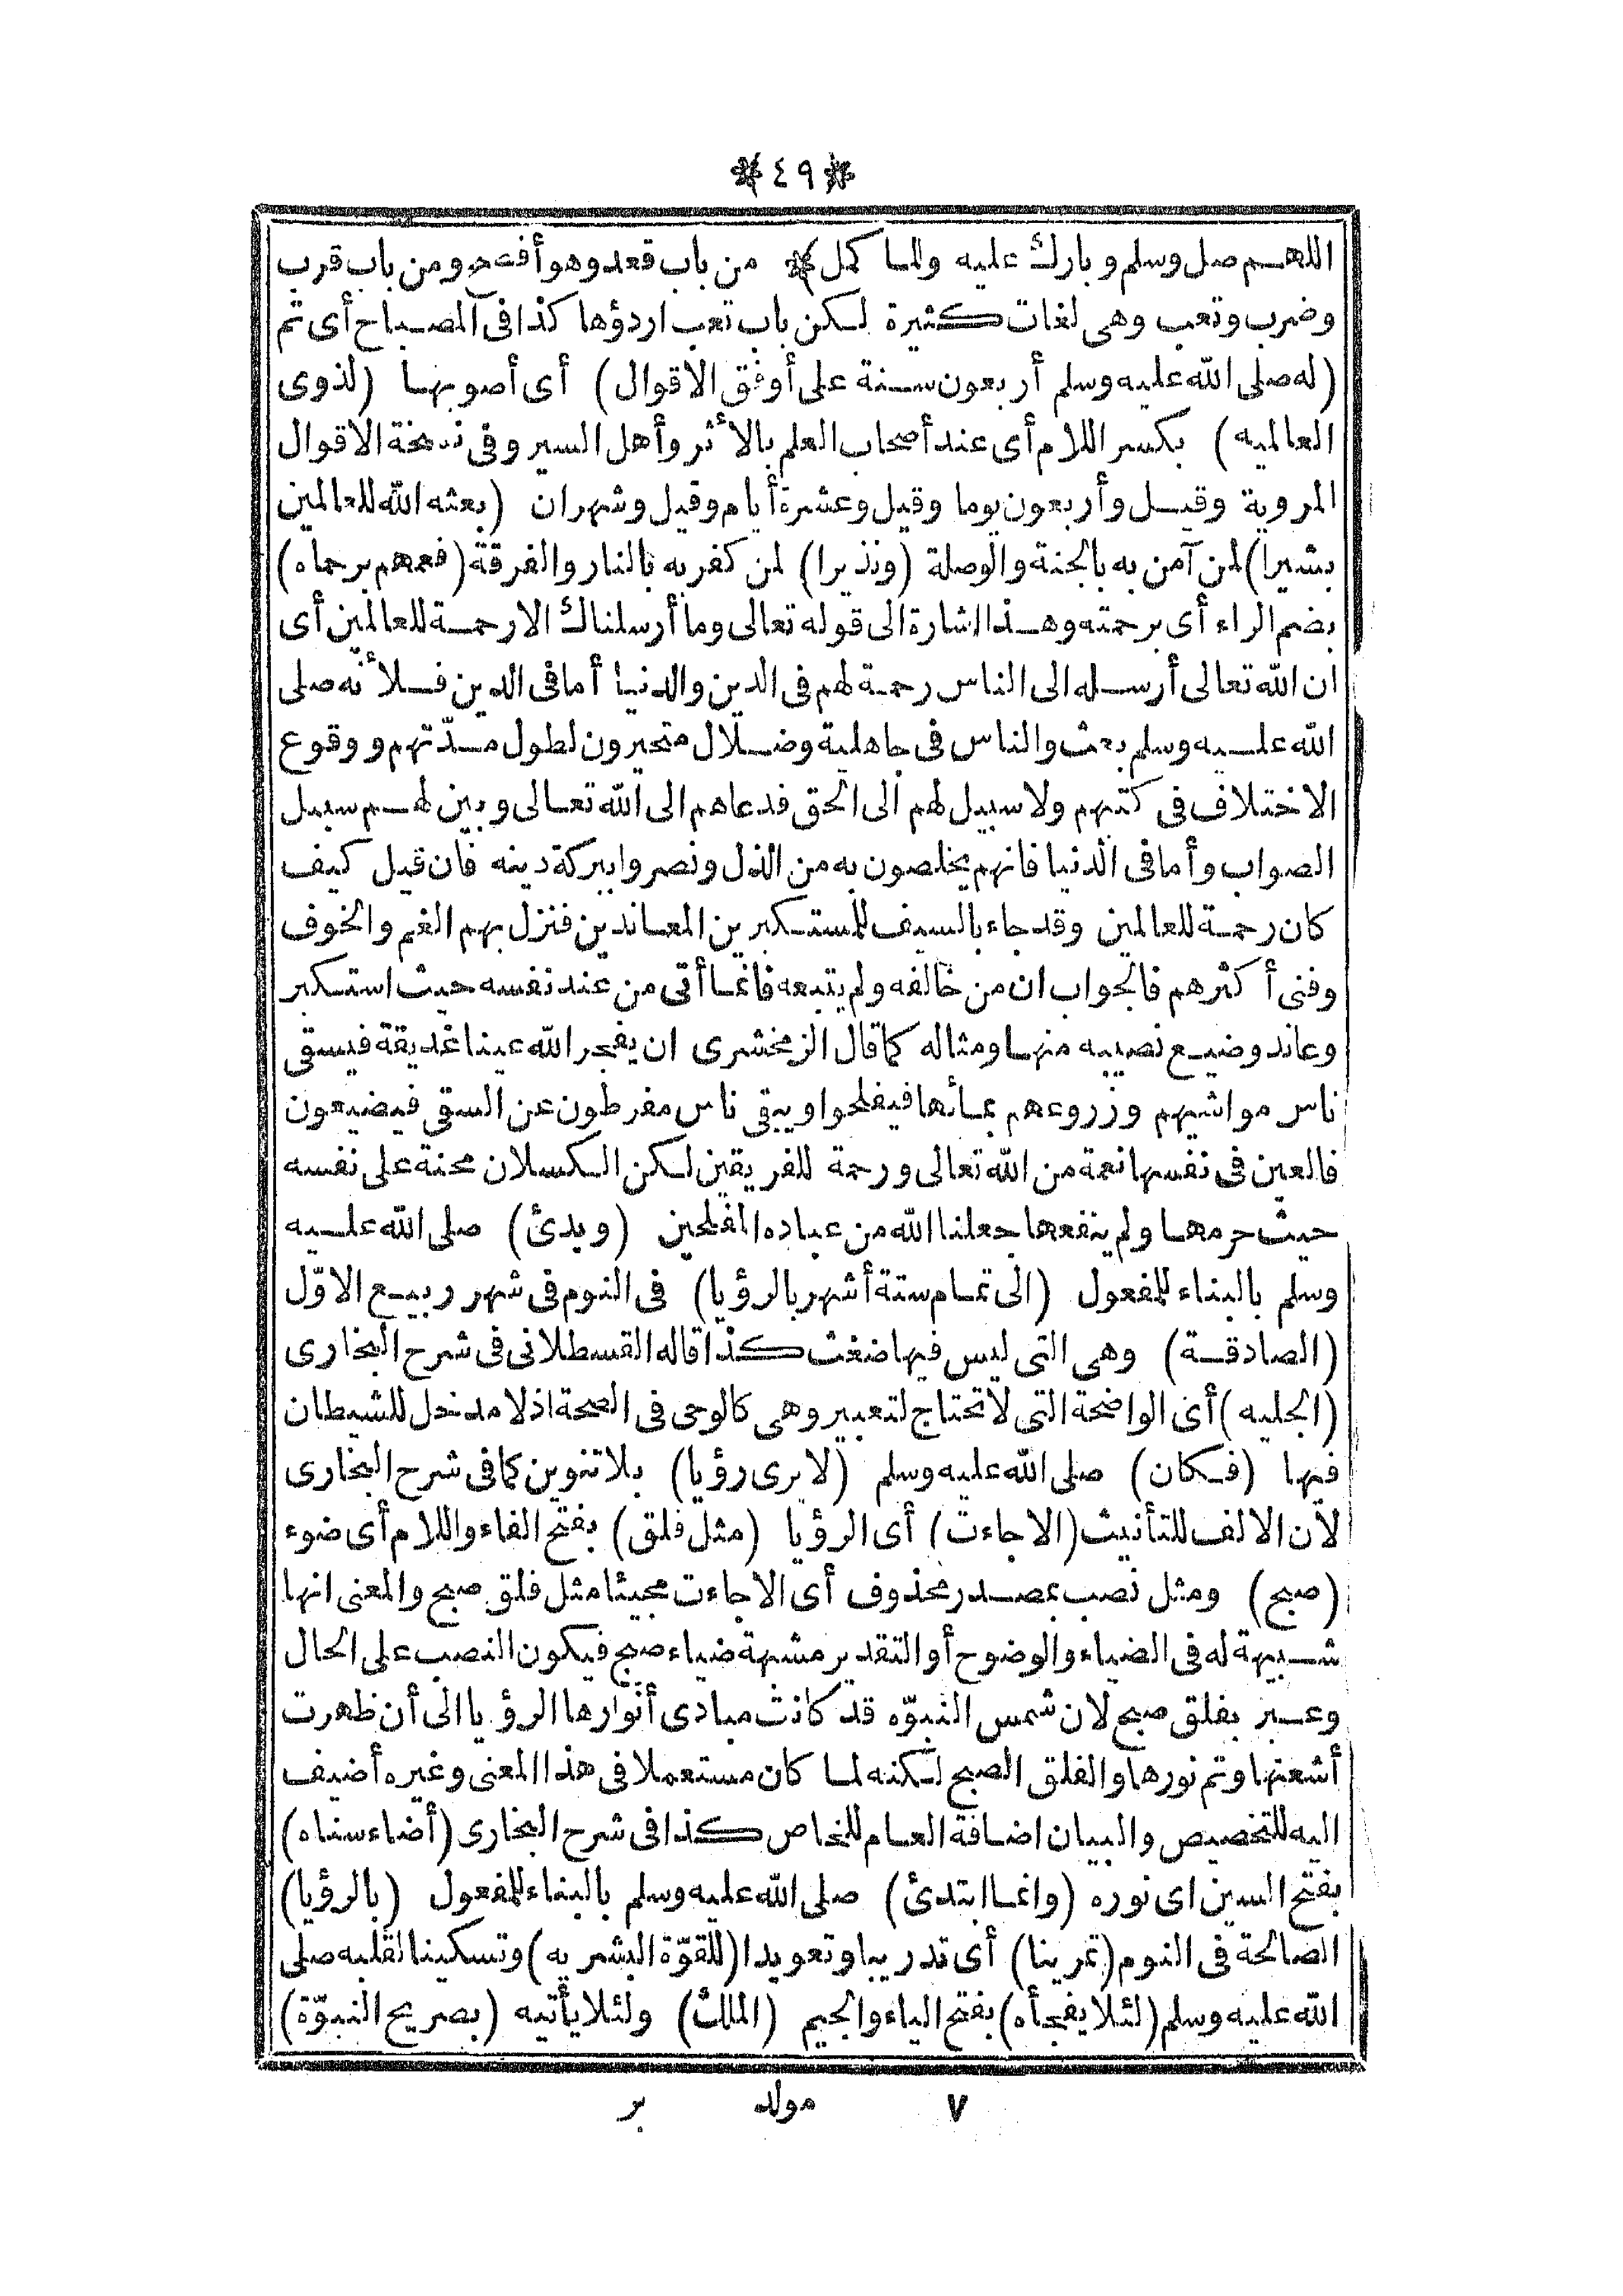 ٤٩
اللهم صل وسلم وبارك عليه ولما كمل من باب قعد وهو أفصح ومن باب قرب
وضرب وتعب وهى لغات كثيرة لكن باب تعب اردؤها كذا فى المصباح أى تم
(له صلى الله عليه وسلم أربعون سنة على أوفق الاقوال) أى أصوبها (لذوى
العالميه) بكسر اللام أى عند أصحاب العلم بالأثر وأهل السير وفى نسخة الاقوال
المروية وقيل وأربعون يوما وقيل وعشرة أيام وقيل وشهران (بعثه الله للعالمين
بشيرا) لمن آمن به بالجنة والوصلة (ونذيرا) لمن كفر به بالنار والفرقة (فعمهم برحماه)
بضم الراء أى برحمته وهذا اشارة الى قوله تعالى وما أرسلناك الارحمة للعالمين أى
ان الله تعالى أرسله الى الناس رحمة لهم فى الدين والدنيا أما فى الدين فلأنه صلى
الله عليه وسلم بعث والناس فى جاهلية وضلال متحيرون لطول مدّتهم ووقوع
الاختلاف فى كتبهم ولا سبيل لهم الى الحق فدعاهم الى الله تعالى وبين لهم سبيل
الصواب وأما فى الدنيا فانهم يخلصون به من الذل ونصروا ببركة دينه فان قيل كيف
كان رحمة للعالمين وقد جاء بالسيف للمستكبرين المعاندين فنزل بهم الغم والخوف
وفنى أكثرهم فالجواب ان من خالفه ولم يتبعه فانما أتى من عند نفسه حيث استكبر
وعاند وضيع نصيبه منها ومثاله كما قال الزمخشرى ان يفجر الله عينا غديقة فيسقى
ناس مواشيهم وزروعهم بمائها فيفلحوا ويبقى ناس مفرطون عن السقى فيضيعون
فالعين فى نفسها نعمة من الله تعالى ورحمة للفريقين لكن الكسلان محنة على نفسه
حيث حرمها ولم ينفعها جعلنا الله من عباده المفلحين (وبدئ) صلى الله عليه
وسلم بالبناء للمفعول (الى تمام ستة أشهر بالرؤيا) فى النوم فى شهر ربيع الاوّل
(الصادقة) وهى التى ليس فيها ضغث كذا قاله القسطلانى فى شرح البخارى
(الجليه) أى الواضحة التى لا تحتاج لتعبير وهى كالوحى فى الصحة اذ لا مدخل للشيطان
فيها (فكان) صلى الله عليه وسلم (لا يرى رؤيا) بلا تنوين كما فى شرح البخارى
لأن الالف للتأنيث (الا جاءت) أى الرؤيا (مثل فلق) بفتح الفاء واللام أى ضوء
(صبح) ومثل نصب بمصدر محذوف أى الا جاءت مجيئا مثل فلق صبح والمعنى انها
شبيهة له فى الضياء والوضوح أو التقدير مشبهة ضياء صبح فيكون النصب على الحال
وعبر بفلق صبح لان شمس النبوّه قد كانت مبادى أنوارها الرؤيا الى أن ظهرت
أشعتها وتم نورها والفلق الصبح لكنه لما كان مستعملا فى هذا المعنى وغيره أضيف
اليه للتخصيص والبيان اضافة العام للخاص كذا فى شرح البخارى (أضاء سناه)
بفتح السين اى نوره (وانما ابتدئ) صلى الله عليه وسلم بالبناء للمفعول (بالرؤيا)
الصالحة فى النوم (تمرينا) أى تدريبا وتعويدا (للقوّة البشريه) وتسكينا لقلبه صلى
الله عليه وسلم (لئلا يفجأه) بفتح الياء والجيم (الملك) ولئلا يأتيه (بصريح النبوّة)
٧ مولد بر